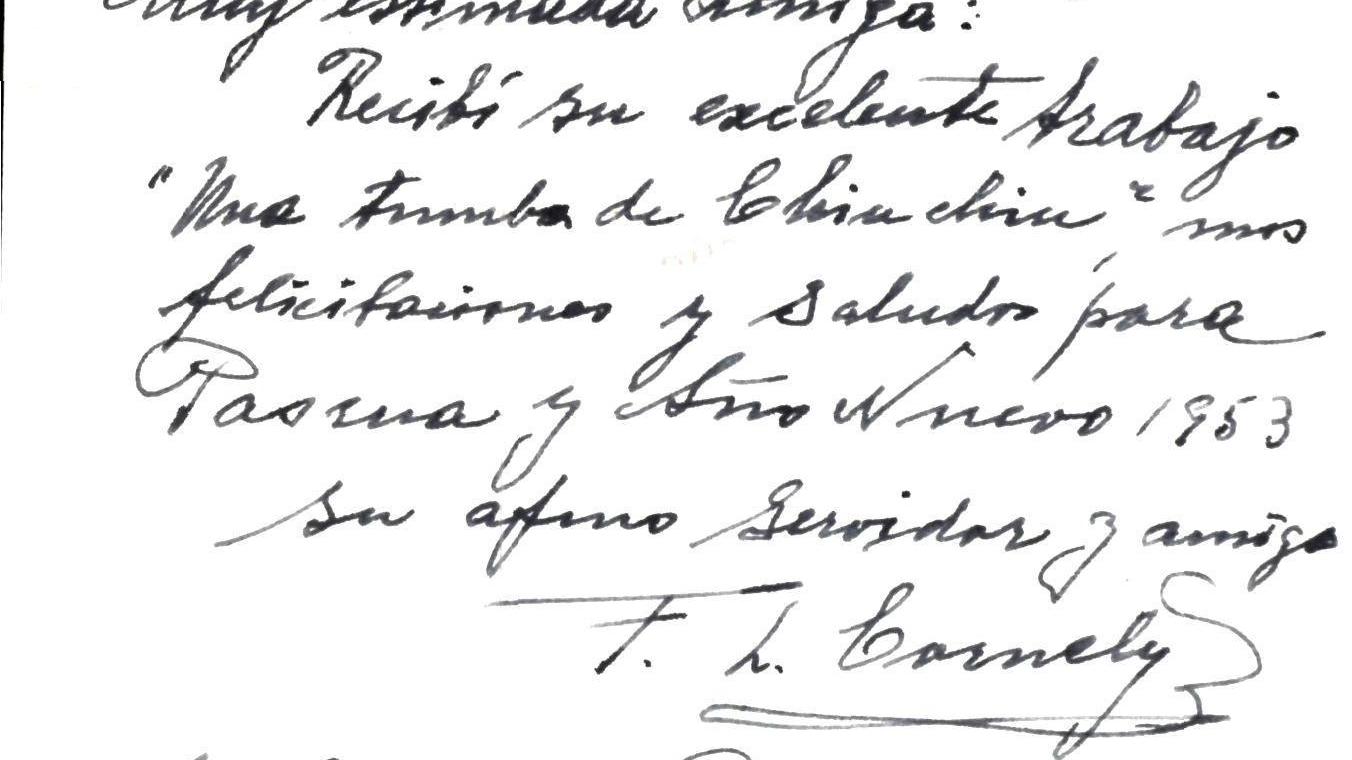 Muy estimada amiga:
Recibí su excelente trabajo
"Una tumba de Chiuchiu" mis
felicitaciones y saludos para
Pascua y Año Nuevo 1953
su afmo servidor y amigo
F. L. Cornely